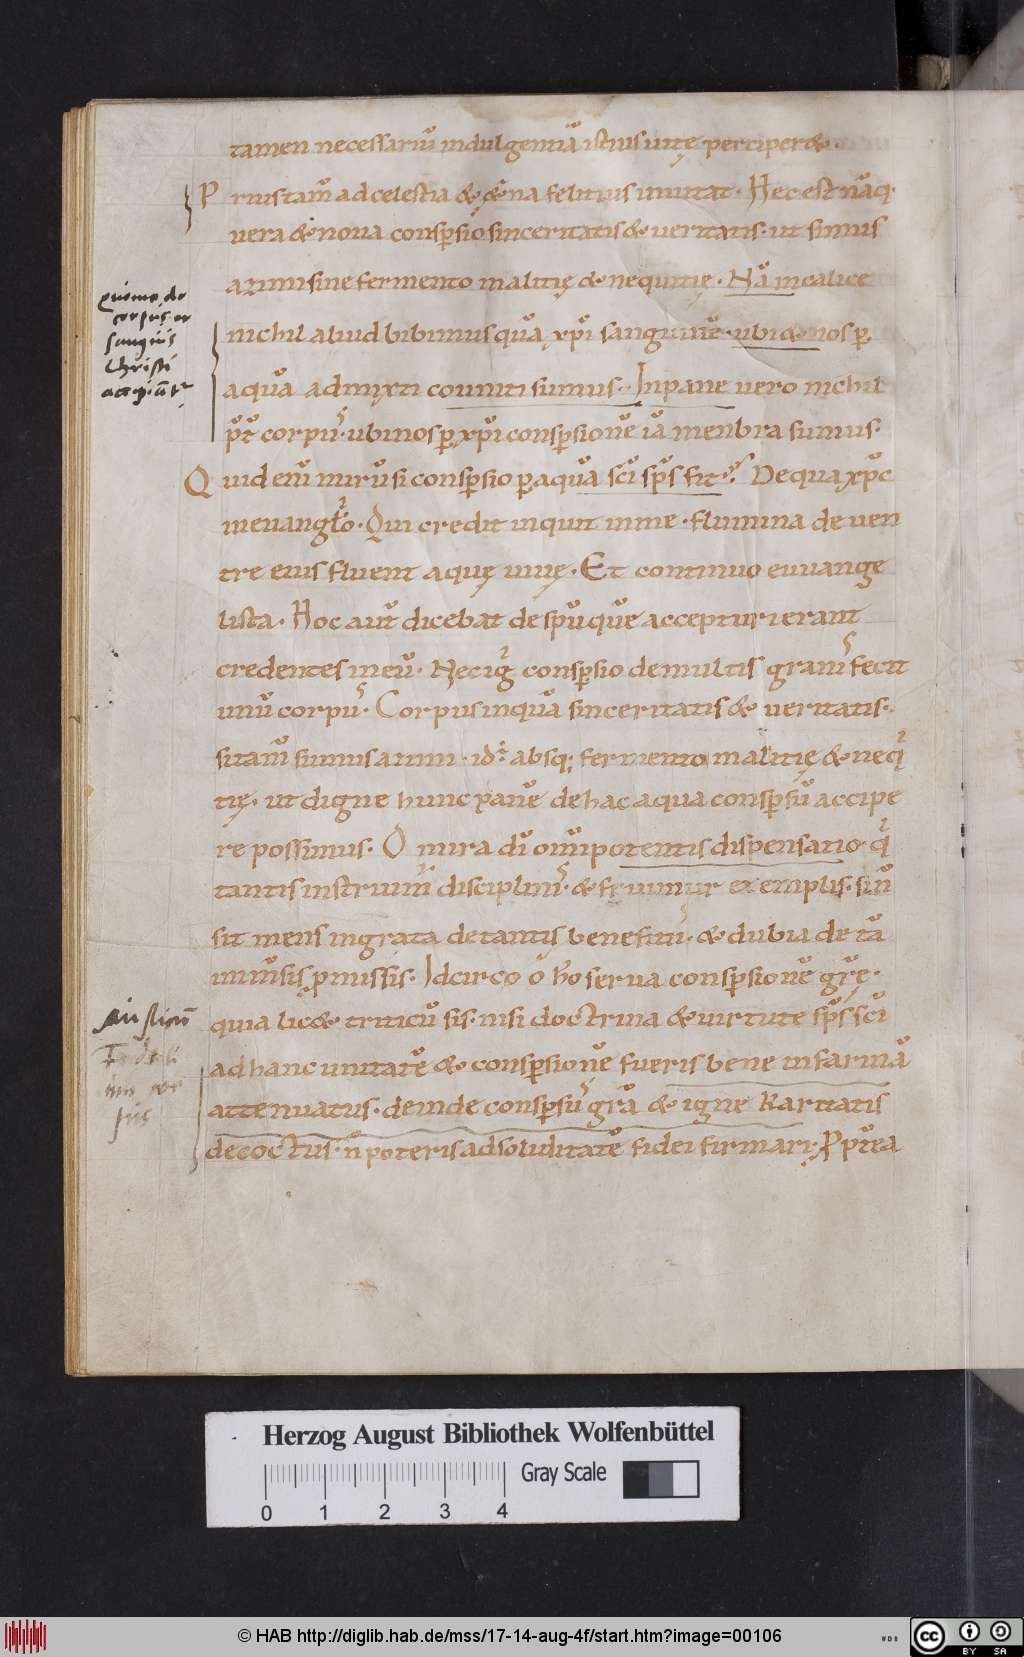 tamen necessariū indulgentiā istius uitę percipere &.
P riustam̄ ad celestia & et̄na felicius inuitat. Hec est nāq.
uera & noua consp̄sio sinceritatis & ueritatis. ut simus
azimi sine fermento malitię & nequitię. Nā in calice
nichil aliud bibimus quā xp̄i sanguinē. ubi & nos p
aquā admixti couniti sumus. In pane uero nichil
p̄t̄ corpus. ubi nos p xp̄i consp̄sionē iā menbra sumus.
Q uid enī mirū si consp̄sio p aquā sc̄i sp̄s fit? De qua xp̄c
in euangl̄io. Qui credit inquit in me. flumina de uen
tre eius fluent aquę uiuę. Et continuo euuange
lista. Hoc aut̄ dicebat de sp̄u quē accepturi erant
credentes in eū. Hec igr̄ consp̄sio de multis granis fecit
unū corpus. Corpus inquā sinceritatis & ueritatis.
si tam̄ simus azimi. id ē absq; fermento malitię & neqi
tię. ut digne hunc panē de hac aqua consp̄sū accipe
re possimus. O mira dī om̄ipotentis dispensatio. qi
tantis instruim̄ disciplinis. & fruimur exemplis. si n̄
sit mens ingrata de tantis beneficiis. & dubia de tā
inm̄sis pmissis. Idcirco o hō serua consp̄sionē grē.
quia lic& triticū sis. nisi doctrina & uirtute sp̄s sc̄i
ad hanc unitatē & consp̄sionē fueris bene in farinā
attenuatus. deinde consp̄sus grā & igne karitatis
decoctus. n̄ poteris ad soliditatē fidei firmari. Ppt̄ea
quomodo
corpus et
sanguis
Christi
accipiunt̄
corpus
Herzog August Bibliothek Wolfenbüttel
Gray Scale
0 1 2 3 4
© HAB http://diglib.hab.de/mss/17-14-aug-4f/start.htm?image=00106
WDB
cc BY SA